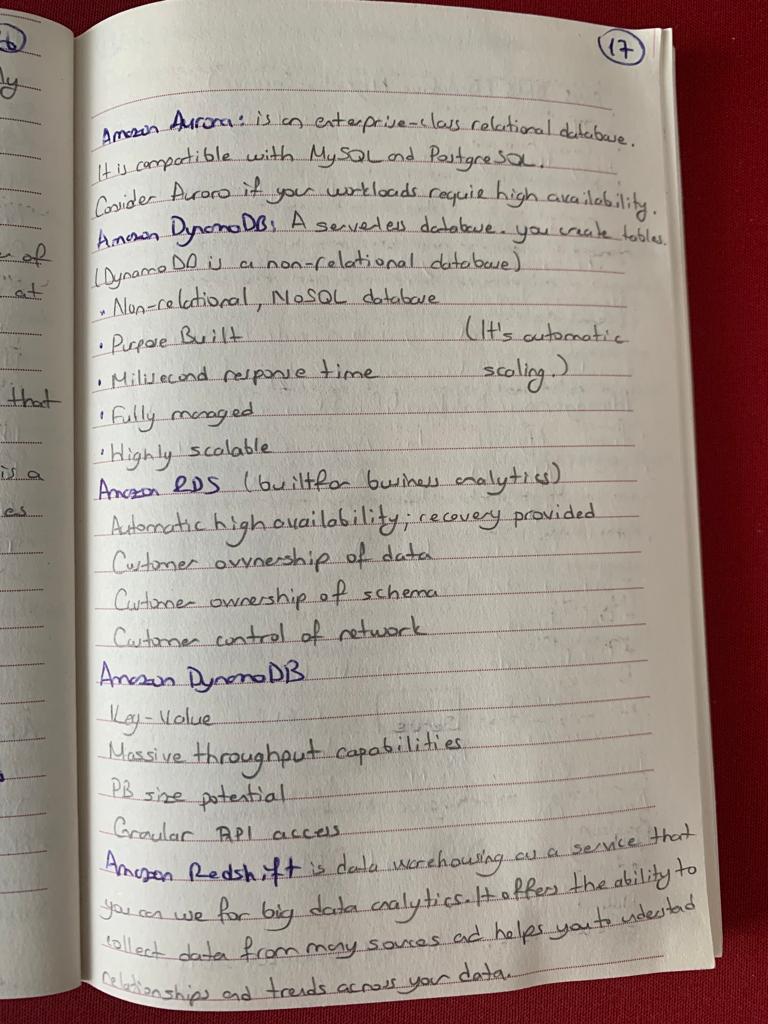 6
ly
e of
at
that
is a
es
17
Amazon Aurora: is an enterprise-class relational database.
It is compatible with MySQL and PostgreSQL.
Consider Aurora if your workloads requie high availability.
Amazon DynamoDB: A serverless database. you create tables.
(DynamoDB is a non-relational database)
• Non-relational, NoSQL database
• Purpose Built (It's automatic
• Milisecond response time scaling.)
• Fully managed
• Highly scalable
Amazon RDS (built for business analytics)
Automatic high availability; recovery provided
Customer ownership of data
Customer ownership of schema
Customer control of network
Amazon DynamoDB
Key-Value
Massive throughput capabilities
PB size potential
Granular API access
Amazon Redshift is data warehousing as a service that
you can use for big data analytics. It offers the ability to
collect data from many sources and helps you to understand
relationships and trends across your data.